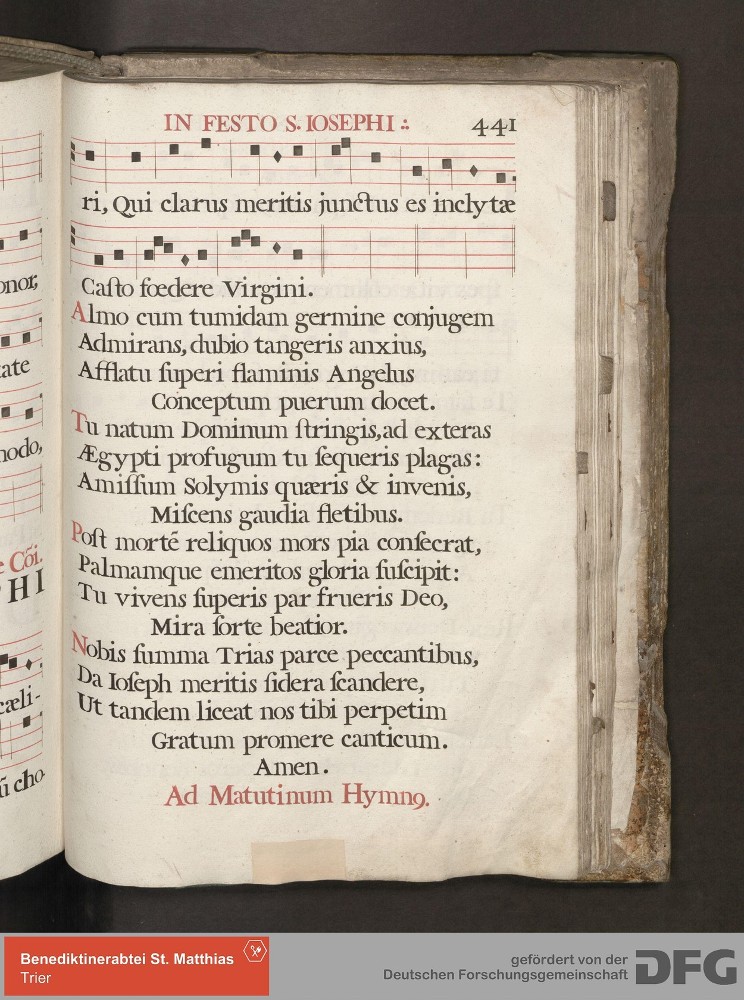 IN FESTO S. IOSEPHI ∴ 441
ri, Qui clarus meritis junctus es inclytæ
Caſto fœdere Virgini.
Almo cum tumidam germine conjugem
Admirans, dubio tangeris anxius,
Afflatu ſuperi flaminis Angelus
Conceptum puerum docet.
Tu natum Dominum ſtringis, ad exteras
Ægypti profugum tu ſequeris plagas:
Amiſſum Solymis quæris & invenis,
Miſcens gaudia fletibus.
Poſt mortē reliquos mors pia conſecrat,
Palmamque emeritos gloria ſuſcipit:
Tu vivens ſuperis par frueris Deo,
Mira ſorte beatior.
Nobis ſumma Trias parce peccantibus,
Da Ioſeph meritis ſidera ſcandere,
Ut tandem liceat nos tibi perpetim
Gratum promere canticum.
Amen.
Ad Matutinum Hymnꝰ.
onor;
tate
nodo,
e Cōi.
PHI
cæli-
ū cho-
Benediktinerabtei St. Matthias
Trier
gefördert von der
Deutschen Forschungsgemeinschaft
DFG